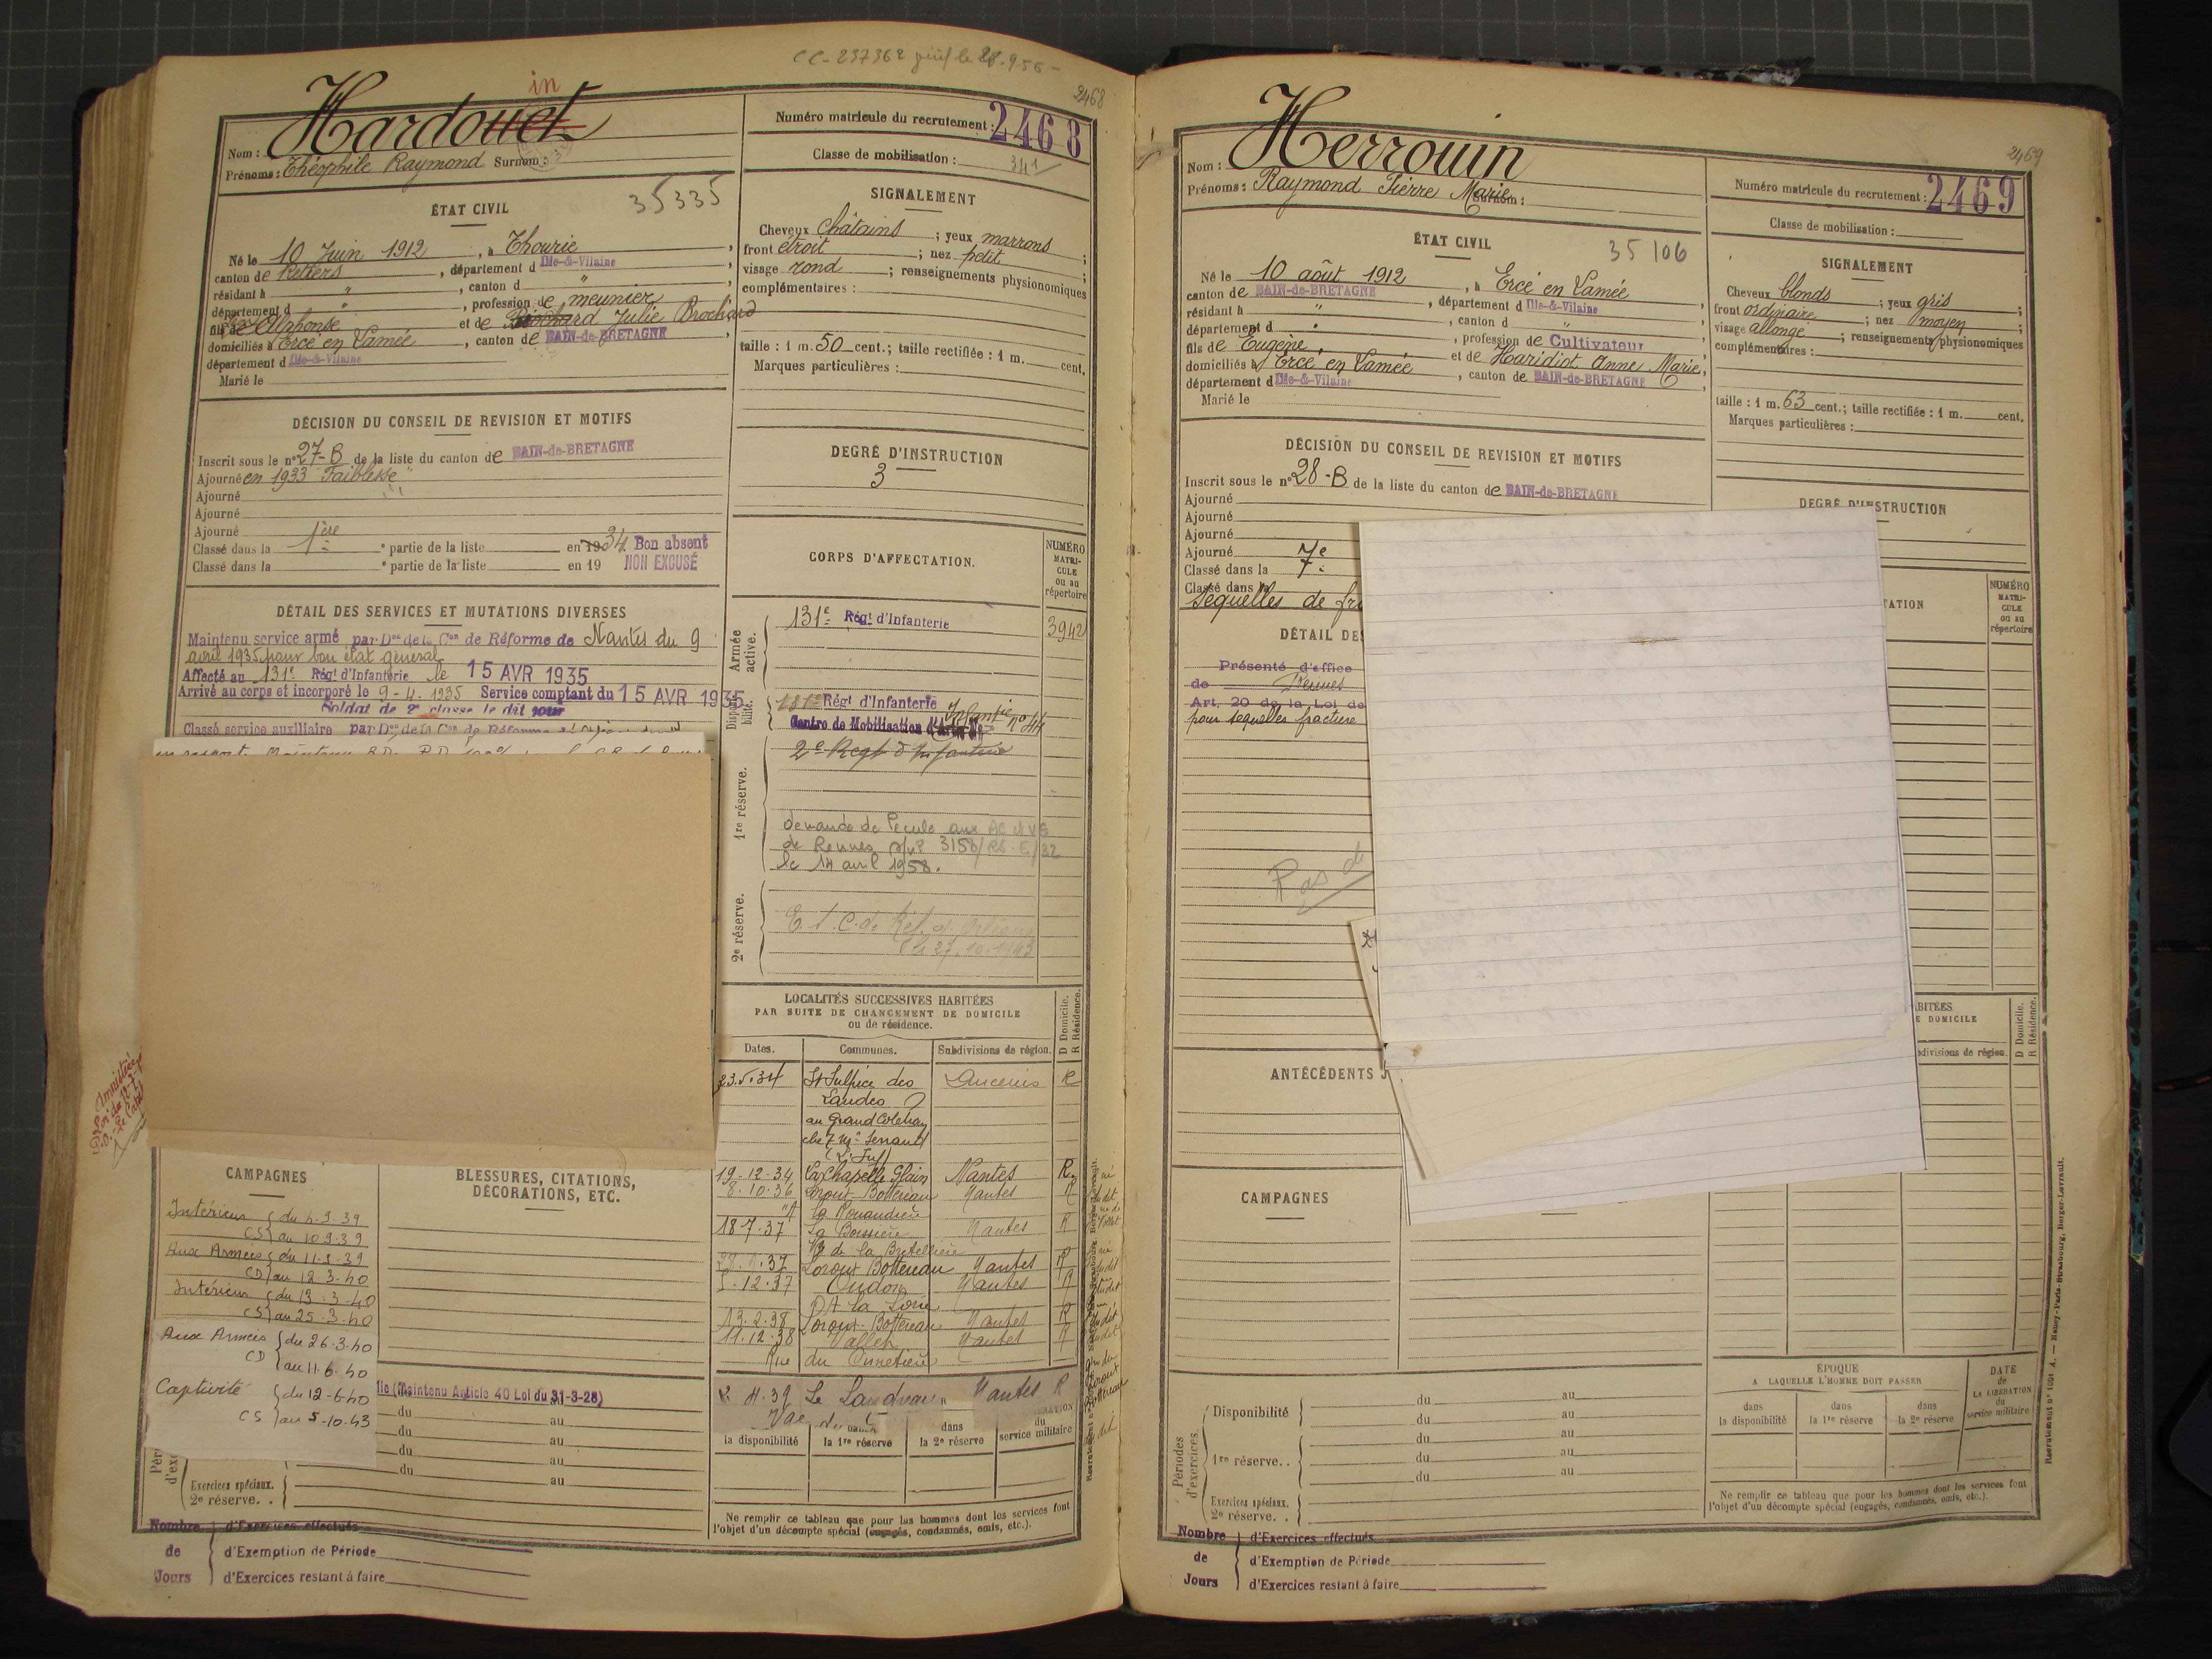 CC-237362
le 28.9.56-
2468
in
Nom : Hardouet
Prénoms : Théophile Raymond Surnom :
Numéro matricule du recrutement : 2468
Classe de mobilisation : 341
ÉTAT CIVIL
35335
Né le 10 Juin 1912, à Thourie,
canton de Retiers, département d Ille-&-Vilaine
résidant à ", canton d "
département d ", profession de meunier
fils de Alphonse et de Brochard Julie Brochard
domiciliés à Ercé en Lamée, canton de BAIN-de-BRETAGNE,
département d Ille-&-Vilaine
Marié le
SIGNALEMENT
Cheveux châtains ; yeux marrons
front étroit ; nez petit ;
visage rond ; renseignements physionomiques
complémentaires :
taille : 1 m. 50 cent. ; taille rectifiée : 1 m. cent.
Marques particulières :
DÉCISION DU CONSEIL DE REVISION ET MOTIFS
Inscrit sous le n° 27-B de la liste du canton de BAIN-de-BRETAGNE
Ajourné en 1933 "Faiblesse"
Ajourné
Ajourné
Ajourné
Classé dans la 1ère partie de la liste en 1934 Bon absent
Classé dans la partie de la liste en 19 NON EXCUSÉ
DEGRÉ D'INSTRUCTION
3
DÉTAIL DES SERVICES ET MUTATIONS DIVERSES
Maintenu service armé par Don de la Con de Réforme de Nantes du 9
avril 1935 pour bon état général
Affecté au 131e Régt d'Infanterie le 15 AVR 1935
Arrivé au corps et incorporé le 9-4-1935 Service comptant du 15 AVR 1935
Soldat de 2e classe le dit jour
Classé service auxiliaire par Don de la Con de Réforme
CORPS D'AFFECTATION.
NUMÉRO MATRI-CULE ou au répertoire
Armée active.
131e Régt d'Infanterie
3942
Disponibilité.
131e Régt d'Infanterie
Centre de Mobilisation d'Infantie n° 44
1re réserve.
2e Regt d'Infanterie
demande de Pecule aux AC et VG
de Rennes
le 14 avril 1958.
2e réserve.
LOCALITÉS SUCCESSIVES HABITÉES
PAR SUITE DE CHANGEMENT DE DOMICILE
ou de résidence.
D Domicile.
R Résidence.
Dates. Communes. Subdivisions de région.
23.5.34 St Sulpice des Ancenis R
Landes
au Grand
19-12-34 La Chapelle Glain Nantes R
8.10.36 Loroux Bottereau Nantes R
18-7-37 La Boissière Nantes R
de la Bretellière
Loroux Bottereau Nantes R
12.37 Oudon Nantes R
13.2.38 Loroux-Bottereau Nantes R
11.12.38 Vallet Nantes R
Rue du Cimetière
Le Landreau Nantes R
dans
la disponibilité la 1re réserve la 2e réserve service militaire
Ne remplir ce tableau que pour les hommes dont les services font
l'objet d'un décompte spécial (engagés, condamnés, omis, etc.).
Amnistié
CAMPAGNES
Intérieur
CS au 10 9.39
Aux Armées du 11-9-39
CD au 12-3-40
Intérieur du 13-3-40
CS au 25-3-40
Aux Armées du 26-3-40
CD au 11-6-40
Captivité du 12-6-40
CS au 5-10-43
BLESSURES, CITATIONS,
DÉCORATIONS, ETC.
(Maintenu Article 40 Loi du 31-3-28)
du au
du au
du au
du au
Exercices spéciaux.
2e réserve. .
Nombre de Jours
d'Exercices effectués
d'Exemption de Période
d'Exercices restant à faire
2469
Nom : Herrouin
Prénoms : Raymond Pierre Marie Surnom :
Numéro matricule du recrutement : 2469
Classe de mobilisation :
ÉTAT CIVIL
35106
Né le 10 août 1912, à Ercé en Lamée
canton de BAIN-de-BRETAGNE, département d Ille-&-Vilaine,
résidant à ", canton d "
département d ", profession de Cultivateur
fils de Eugène, et de Haridiot Anne Marie,
domiciliés à Ercé en Lamée, canton de BAIN-de-BRETAGNE,
département d Ille-&-Vilaine
Marié le
SIGNALEMENT
Cheveux blonds ; yeux gris ;
front ordinaire ; nez moyen ;
visage allongé ; renseignements physionomiques
complémentaires :
taille : 1 m. 63 cent. ; taille rectifiée : 1 m. cent.
Marques particulières :
DÉCISION DU CONSEIL DE REVISION ET MOTIFS
Inscrit sous le n° 28-B de la liste du canton de BAIN-de-BRETAGNE
Ajourné
Ajourné
Ajourné
Ajourné
Classé dans la 7e
Classé dans la
Sequelles de fr
DEGRÉ D'INSTRUCTION
DÉTAIL DES
Présenté d'office
de Rennes
Art. 20 de la Loi de
pour sequelles fracture
Pas de
TATION
NUMÉRO MATRI-CULE ou au répertoire
BITÉES
E DOMICILE
D Domicile.
R Résidence.
bdivisions de région.
ANTÉCÉDENTS J
CAMPAGNES
Périodes d'exercices.
Disponibilité
du au
du au
1re réserve. .
du au
du au
du au
Exercices spéciaux.
2e réserve. .
ÉPOQUE
A LAQUELLE L'HOMME DOIT PASSER
dans la disponibilité
dans la 1re réserve
dans la 2e réserve
DATE de LA LIBÉRATION du service militaire
Ne remplir ce tableau que pour les hommes dont les services font
l'objet d'un décompte spécial (engagés, condamnés, omis, etc.).
Nombre de Jours
d'Exercices effectués
d'Exemption de Période
d'Exercices restant à faire